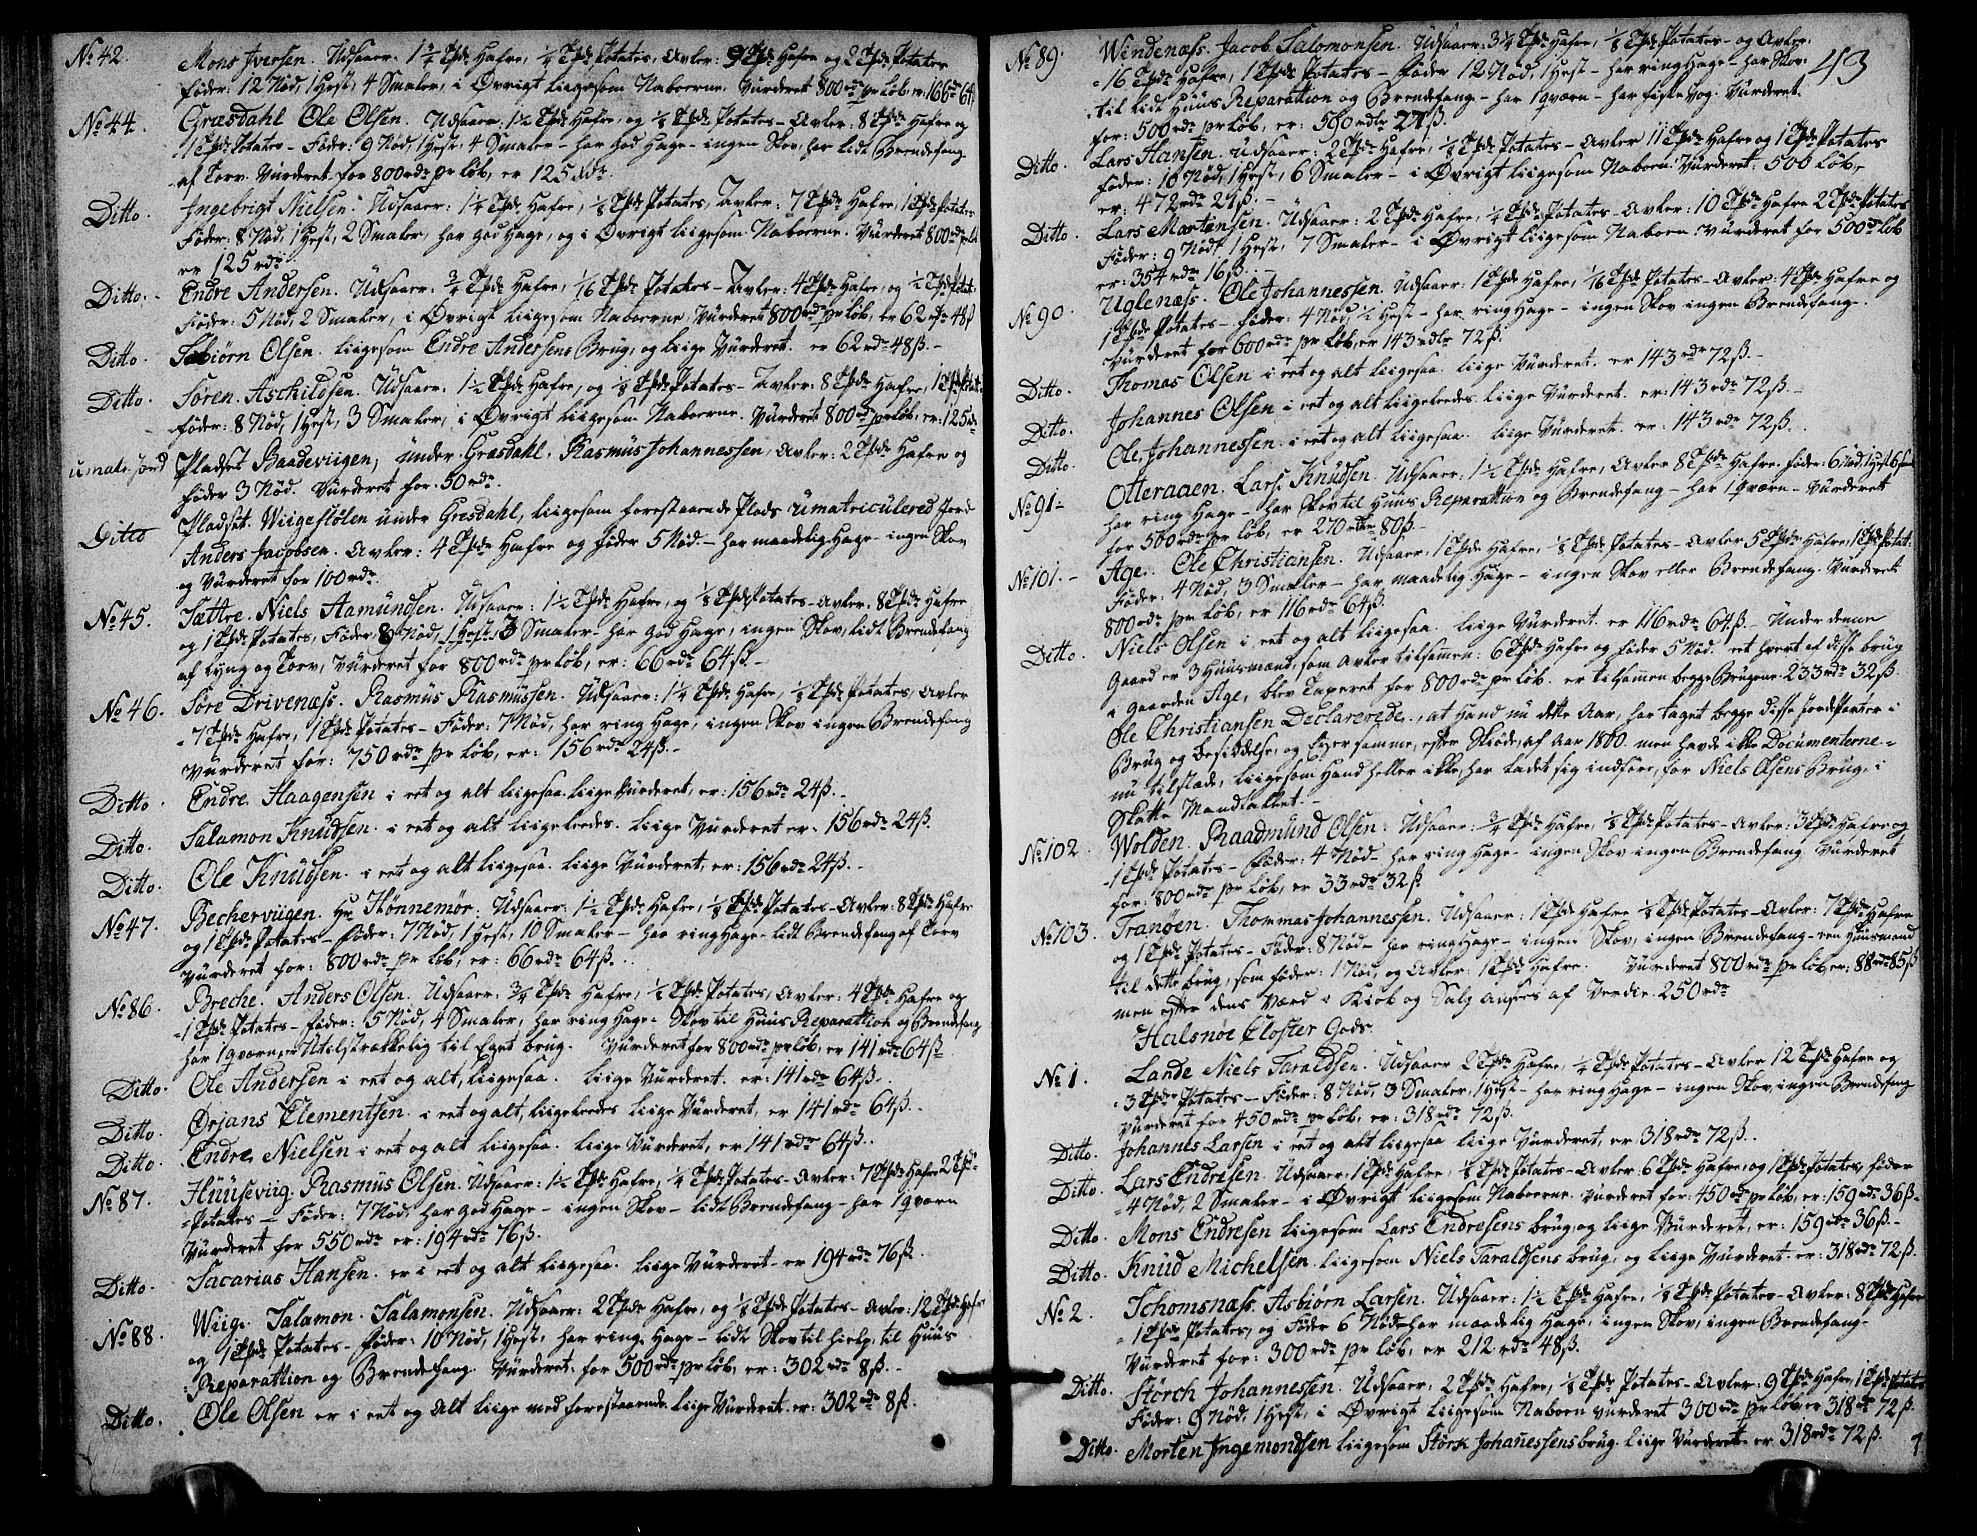 No 42. Mons Iversen. Udsaaer: 1 3/4 Tpde Hafre, 1/4 Tpde Potates, Avler: 9 Tpde Hafre og 2 Tpde Potates
føder: 12 Nød, 1 Hest, 4 Smaler, i Øvrigt liigesom Naboerne. Vurderet 800 rdr pr Løb, er: 166 rdr 64
No 44. Græsdahl Ole Olsen. Udsaaer: 1 1/2 Tpde Hafre, og 1/8 Tpde Potates – Avler: 8 Tpde Hafre og
1 Tpde Potates – Føder: 9 Nød, 1 Hest, 4 Smaler – har god Hage – ingen Skov, har lidt Brendefang
af Torv. Vurderet for 800 rdr pr Løb, er 125 rdr.
Ditto. Ingebrigt Nielsen: Udsaaer: 1 1/4 Tpde Hafre, 1/8 Tpde Potates, Avler: 7 Tpde Hafre, 1 Tpde Potates
Føder: 8 Nød, 1 Hest, 2 Smaler, har god Hage, og i Øvrigt liigesom Naboerne. Vurderet 800 rdr pr Løb
er 125 rdr.
Ditto. Endre Andersen. Udsaaer: 3/4 Tpde Hafre, 1/16 Tpde Potates – Avler: 4 Tpde Hafre, og 1/2 Tpde Potat:
Føder: 5 Nød, 2 Smaler, i Øvrigt liigesom Naboerne, Vurderet 800 rdr pr Løb, er 62 rdr 48 ß
Ditto. Sebiørn Olsen. liigesom Endre Andersens Brug, og liige Vurderet. er 62 rdr 48 ß. –
Ditto. Søren Aschildsen. Udsaaer: 1 1/2 Tpde Hafre, og 1/8 Tpde Potates – Avler: 8 Tpde Hafre, 1 Tpde Potat:
føder: 8 Nød, 1 Hest, 3 Smaler, i Øvrigt liigesom Naboerne. Vurderet 800 rdr pr Løb, er: 125 rdr
umatr. Jord Pladset Baadeviigen, under Græsdahl, Rasmus Johannessen, Avler: 2 Tpde Hafre og
føder 3 Nød. Vurderet for: 50 rdr.
Ditto Pladset. Wiigestølen under Gresdahl, liigesom forestaaende Plads umatriculered Jord
Anders Jacobsen. Avler: 4 Tpde Hafre og føder 5 Nød. – har maadelig Hage – ingen Skov
og Vurderet for 100 rdr.
No 45. Tættre. Niels Aamundsen. Udsaaer: 1 1/2 Tpde Hafre, og 1/8 Tpde Potates – Avler: 8 Tpde Hafre
og 1 Tpde Potates, Føder 8 Nød, 1 Hest, 3 Smaler – har god Hage, ingen Skov, lidt Brendefang
af Lyng og Torv, Vurderet for 800 rdr pr Løb, er: 66 rdr 64 ß. –
No 46. Søre Drivenæss. Rasmus Rasmussen. Udsaaer: 1 1/4 Tpde Hafre, 1/8 Tpde Potates, Avler
7 Tpde Hafre, 1 Tpde Potates – Føder: 7 Nød, har ring Hage, ingen Skov ingen Brendefang
Vurderet for: 750 rdr pr Løb, er: 156 rdr 24 ß. –
Ditto. Endre Haagensen i eet og alt liigesaa. liige Vurderet, er: 156 rdr 24 ß. –
Ditto. Salamon Knudsen. i eet og alt liigeleedes. liige Vurderet er: 156 rdr 24 ß.
Ditto. Ole Knudsen. i eet og alt liigesaa. liige Vurderet, er: 156 rdr 24 ß. –
No 47. Becherviigen. Hr Hønnemør. Udsaaer: 1 1/2 Tpde Hafre, 1/8 Tpde Potates – Avler: 8 Tpde Hafre
og 1 Tpde Potates – Føder: 7 Nød, 1 Hest, 10 Smaler – har ring Hage – lidt Brendefang af Torv
Vurderet for: 800 rdr pr Løb, er: 66 rdr 64 ß.
No 86. Breche. Anders Olsen. Udsaaer: 3/4 Tpde Hafre, 1/4 Tpde Potates, Avler: 4 Tpde Hafre og
1 Tpde Potates – føder: 5 Nød, 4 Smaler, har ring Hage – Skov til Huus Reparattion og Brendefang
har 1 qværn, er Utilstrækkelig til Eget brug. Vurderet for 800 rdr pr Løb, er 141 rdr 64 ß
Ditto. Ole Andersen i eet og alt, liigesaa. liige Vurderet. er: 141 rdr 64 ß.
Ditto. Ørjans Clementsen. i eet og alt, liigeleedes liige Vurderet, er 141 rdr 64 ß. –
Ditto. Endre Nielsen i eet og alt liigesaa. liige Vurderet, er 141 rdr 64 ß.
No 87. Huuseviig. Rasmus Olsen. Udsaaer: 1 1/2 Tpde Hafre, 1/4 Tpde Potates – Avler: 7 Tpde Hafre 2 Tpde
Potates – Føder: 7 Nød, har god Hage – ingen Skov – lidt Brendefang – har 1 qværn
Vurderet for 550 rdr er: 194 rdr 76 ß.
Ditto. Sacarias Hansen. er i eet og alt liigesaa. liige Vurderet – er 194 rdr 76 ß.
No 88. Wiig. Salamon Salamonsen. Udsaaer: 2 Tpde Hafre, og 1/8 Tpde Potates – Avler: 12 Tpde Hafre
og 1 Tpde Potates – føder: 10 Nød, 1 Hest, har ring Hage – lidt Skov til hielp til Huus
Reparattion og Brendefang. Vurderet. for 500 rdr pr Løb, er: 302 rdr 8 ß. –
Ditto. Ole Olsen er i eet og alt liige med forestaaende. liige Vurderet. er: 302 rdr 8 ß.
43
No 89. Windenæss. Jacob Salomonsen. Udsaaer: 3 1/4 Tpde Hafre, 1/8 Tpde Potates – og Avler:
16 Tpde Hafre, 1 Tpde Potates – føder 12 Nød, 1 Hest – har ring Hage – har Skov
til lidt Huus Reparattion og Brendefang – har 1 qværn – har fiske Vog. Vurderet.
for: 500 rdr pr Løb, er: 590 rdlr 21 ß.
Ditto. Lars Hansen. Udsaaer: 2 Tpde Hafre, 1/8 Tpde Potates – Avler 11 Tpde Hafre og 1 Tpde Potates
føder: 10 Nød, 1 Hest, 6 Smaler – i Øvrigt liigesom Naboen. Vurderet. 500 Løb, –
er: 472 rdr 21 ß. –
Ditto. Lars Mortensen. Udsaaer: 2 Tpde Hafre, 1/4 Tpde Potates – Avler: 10 Tpde Hafre 2 Tpde Potates
Føder: 9 Nød, 1 Hest, 7 Smaler – i Øvrigt liigesom Naboen. Vurderet for 500 rdr Løb
er: 354 rdr 16 ß. –
No 90. Uglenæss. Ole Johannessen. Udsaaer: 1 Tpde Hafre, 1/16 Tpde Potates – Avler: 4 Tpde Hafre og
1 Tpde Potates – føder: 4 Nød, 1/2 Hest – har ring Hage – ingen Skov ingen Brendefang.
Vurderet for 600 rdr pr Løb, er 143 rdlr 72 ß.
Ditto. Thomas Olsen i eet og alt liigesaa. liige Vurderet. er 143 rdr 72 ß. –
Ditto. Johannes Olsen i eet og alt liigeleedes. liige Vurderet. er: 143 rdr 72 ß. –
Ditto. Ole Johannessen. i eet og alt liigesaa. liige Vurderet. er: 143 rdr 72 ß.
No 91 – Otteraaen. Lars Knudsen. Udsaaer: 1 1/2 Tpde Hafre, Avler 8 Tpde Hafre. føder: 6 Nød, 1 Hest 6 Smal
har ring Hage – har Skov til Huus Reparattion og Brendefang – har 1 qværn – Vurderet
for 500 rdr pr Løb, er 270 rdlr 80 ß –
No 101. – Age. Ole Christiansen. Udsaaer: 1 Tpde Hafre, 1/8 Tpde Potates – Avler 5 Tpde Hafre, 1 Tpde Potat:
Føder: 4 Nød, 3 Smaller – har maadelig Hage – ingen Skov eller Brendefang. Vurderet
800 rdr pr Løb, er 116 rdr 64 ß.
Ditto. Niels Olsen i eet og alt liigesaa. liige Vurderet. er 116 rdr 64 ß. – Under denne
Gaard er 3 Huusmænd, som Avler tilsamen: 6 Tpde Hafre og føder 5 Nød. et hvert af disse brug
i Gaarden Age, blev Taxeret for 800 rdr pr Løb. er tilsamen begge Brugene 233 rdr 32 ß.
Ole Christiansen Declarerede, at Hand nu dette Aar, har taget begge disse Jordparter i
Brug og Besiddelse, og Eyer samme, efter Skiøde, af Aar 1800. men havde ikke Documenterne
nu tilstæde, liigesom Hand heller ikke har ladet sig indføre, for Niels Olsens Brug, i
Skatte Mandtallet. –
No 102. Wolden. Raadmund Olsen: Udsaaer: 3/4 Tpde Hafre, 1/8 Tpde Potates – Avler: 3 Tpde Hafre og
1 Tpde Potates – Føder: 4 Nød – har ring Hage – ingen Skov ingen Brendefang Vurderet
for: 800 rdr pr Løb, er 33 rdr 32 ß
No 103. Tranøen. Thommas Johannessen. Udsaaer: 1 Tpde Hafre 1/8 Tpde Potates – Avler: 7 Tpde Hafre
og 1 Tpde Potates – Føder: 8 Nød – har ring Hage – ingen Skov, ingen Brendefang – een Huusmand
til dette brug, som føder: 1 Nød, og Avler: 1 Tpde Hafre. Vurderet 800 rdr pr Løb, er: 88 rdr 85 ß
men efter dens Værd i Kiøb og Salg ansees af Verdie: 250 rdr
Halsnøe Closter Gods.
No 1. Lande Niels Taraldsen. Udsaaer 2 Tpde Hafre, 1/4 Tpde Potates – Avler 12 Tpde Hafre og
3 Tpde Potates – Føder: 8 Nød, 3 Smaler, 1 Hest – har ring Hage – ingen Skov, ingen Brendefang
Vurderet for 450 rdr pr Løb, er: 318 rdr 72 ß.
Ditto. Johannes Larsen i eet og alt liigesaa liige Vurderet, er: 318 rdr 72 ß. –
Ditto. Lars Endresen. Udsaaer: 1 Tpde Hafre, 1/8 Tpde Potates – Avler: 6 Tpde Hafre, og 1 Tpde Potates, føder
4 Nød, 2 Smaler – i Øvrigt liigesom Naboerne. Vurderet for: 450 rdr pr Løb, er: 159 rdr 36 ß –
Ditto. Mons Endresen liigesom Lars Endresens brug, og liige Vurderet, er: 159 rdr 36 ß. –
Ditto. Knud Michelsen. liigesom Niels Taraldsens brug, og liige Vurderet. er: 318 rdr 72 ß.
No 2. Schomsnæss. Asbiørn Larsen. Udsaaer: 1 1/2 Tpde Hafre, 1/8 Tpde Potates – Avler: 8 Tpde Hafre
1 Tpde Potates, og Føder 6 Nød – har maadelig Hage, ingen Skov, ingen Brendefang –
Vurderet for: 300 rdr pr Løb, er 212 rdr 48 ß.
Ditto. Størch Johannessen. Udsaaer: 2 Tpde Hafre, 1/8 Tpde Potates – Avler: 9 Tpde Hafre, 1 Tpde Potates
Føder: 9 Nød, 1 Hest, i Øvrigt liigesom Naboen Vurderet 300 rdr pr Løb er 318 rdr 72 ß.
Ditto. Morten Ingemondsen liigesom Størk Johanesens brug. liige Vurderet er 318 rdr 72 ß.